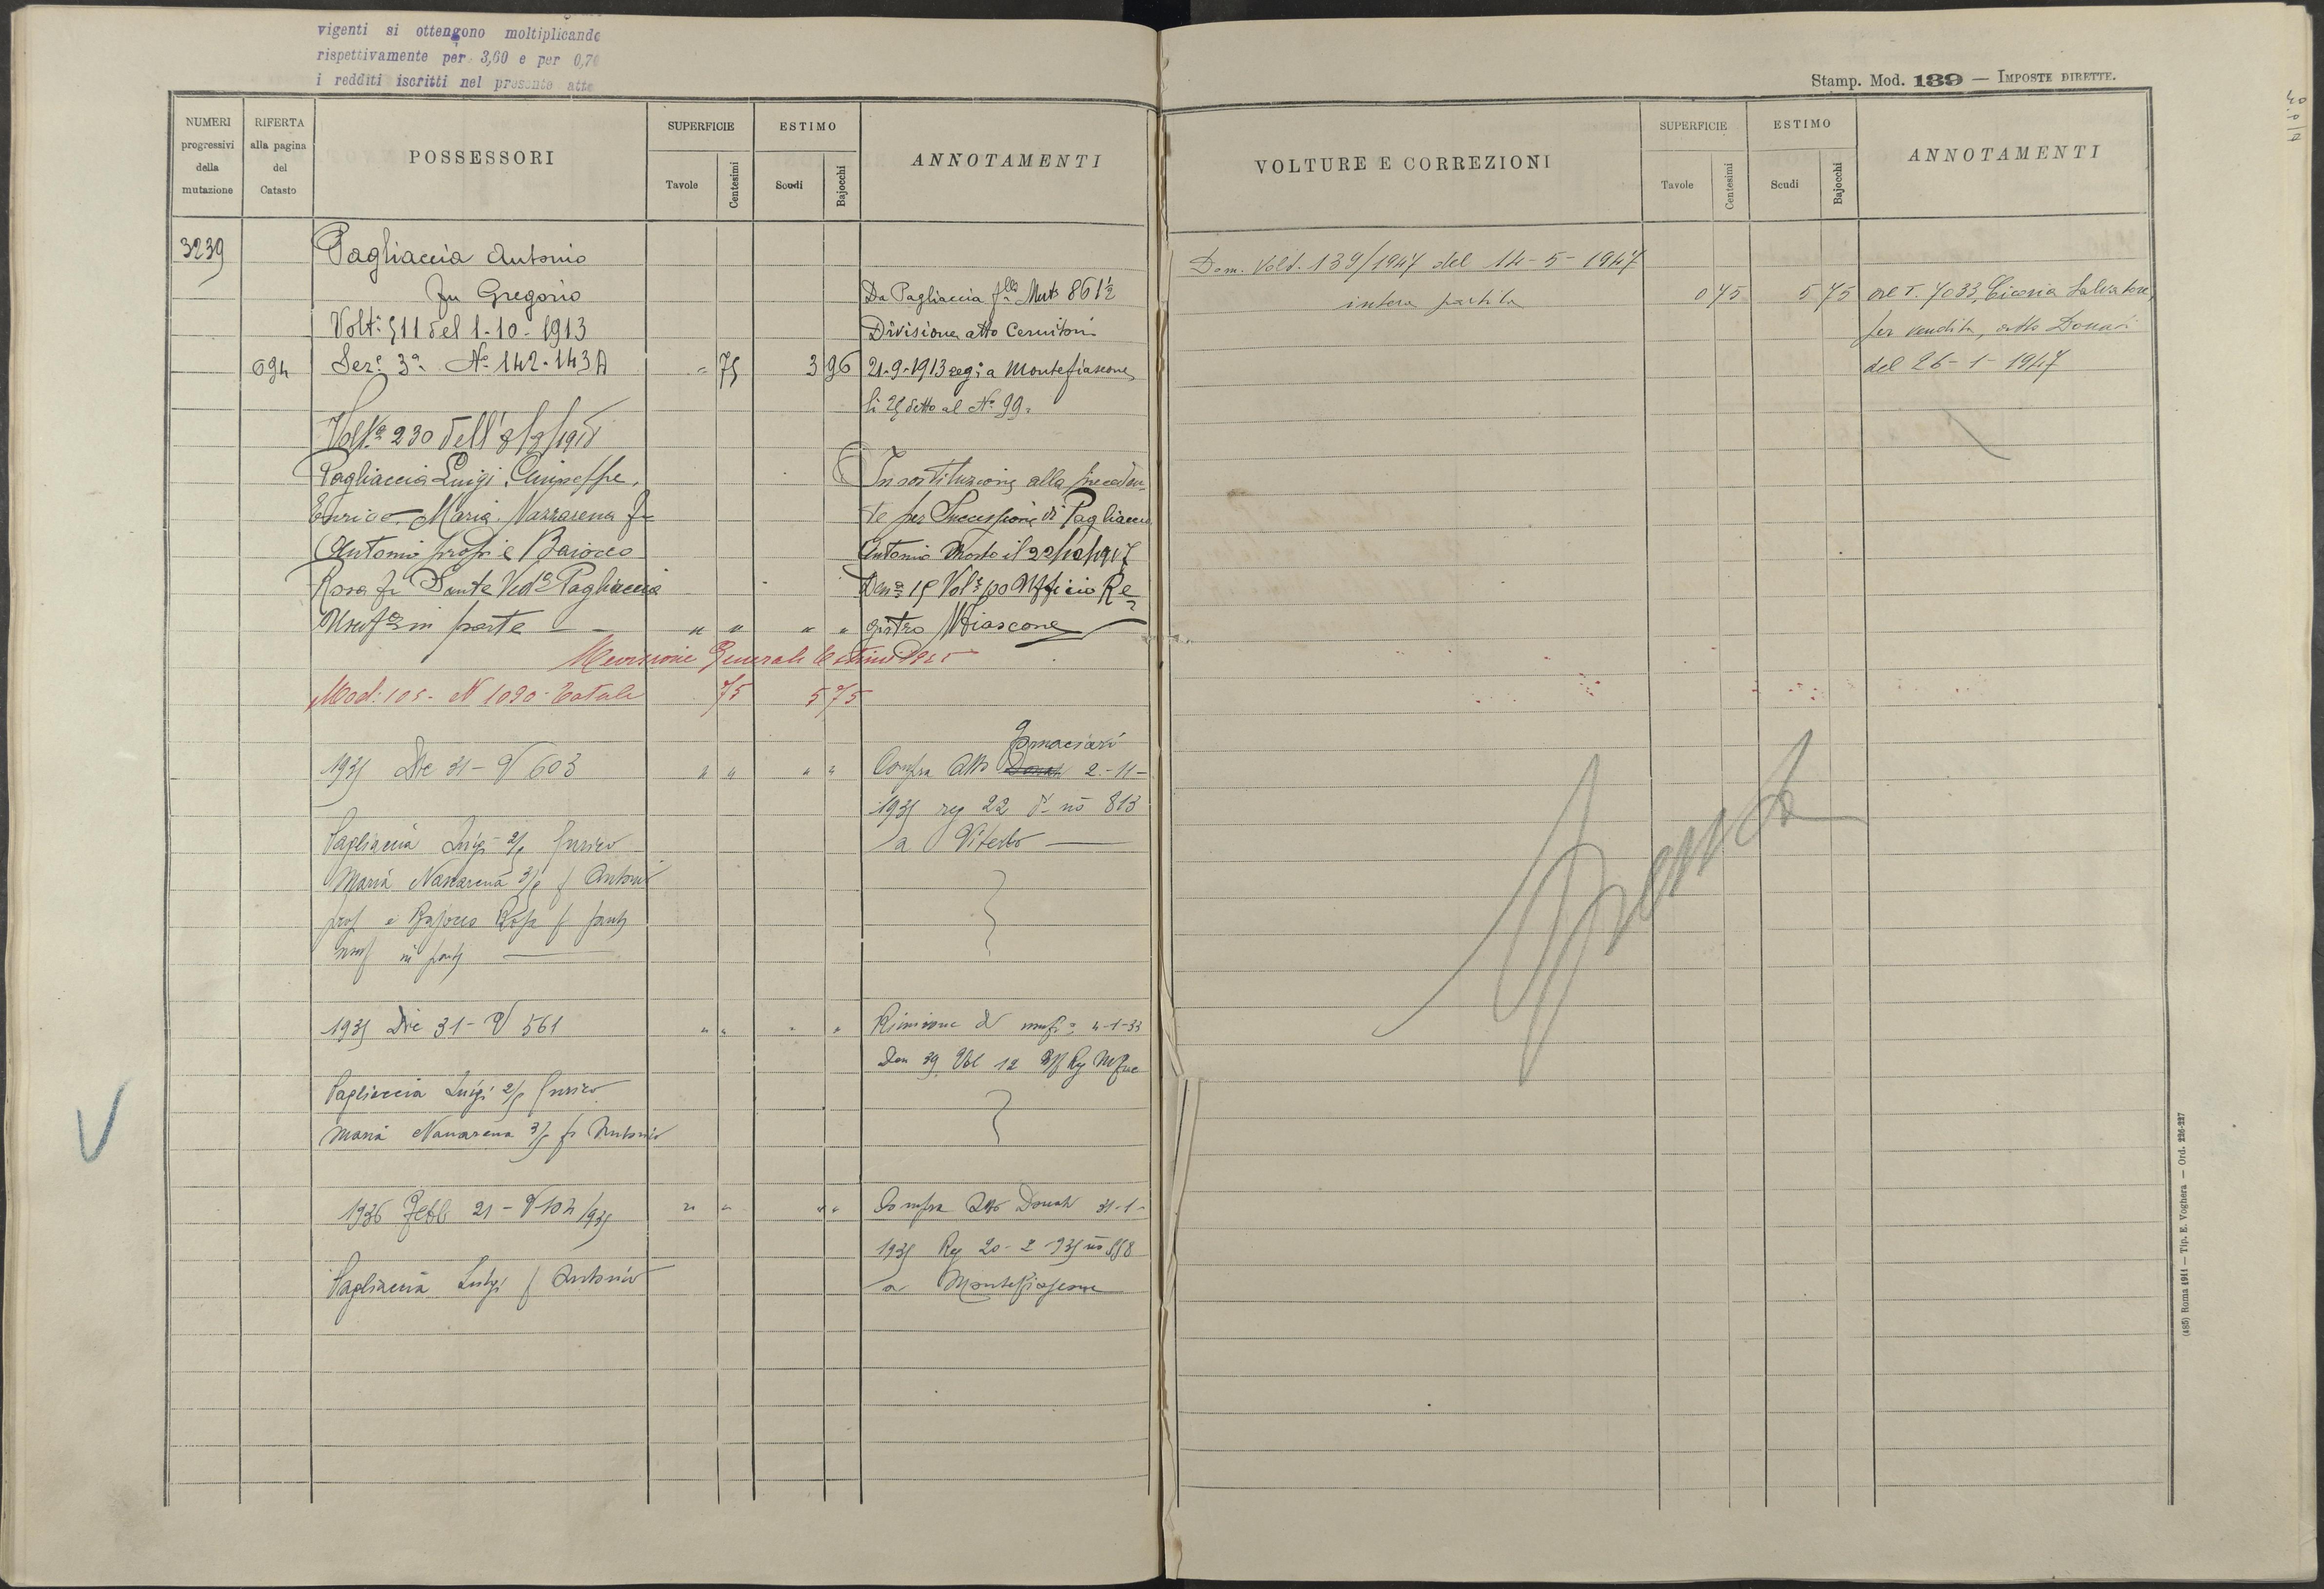 vigenti si ottengono moltiplicando
rispettivamente per 3,60 e per 0,70
i redditi iscritti nel presente atto
Stamp. Mod. 139 — IMPOSTE DIRETTE.
NUMERI progressivi della mutazione
RIFERTA alla pagina del Catasto
POSSESSORI
SUPERFICIE
Tavole
Centesimi
ESTIMO
Scudi
Bajocchi
ANNOTAMENTI
VOLTURE E CORREZIONI
SUPERFICIE
Tavole
Centesimi
ESTIMO
Scudi
Bajocchi
ANNOTAMENTI
3239 Pagliaccia Antonio
fu Gregorio
Da Pagliaccia flli Mut 861½
Volt: 511 del 1-10-1913
Divisione atto Cernitori
694 Sez: 3a No 142-143A " 75 3 96 21-9-1913 reg: a Montefiascone
li 25 detto al No 99.
Volta 230 dell'8/8/1918
Pagliaccia Luigi, Giuseppe,
In sostituzione alla preceden-
Enrico, Maria, Nazzarena fu
te per Successione di Pagliaccia
Antonio propri e Baiocco
Antonio Morto il 22/12/1917
Rosa fu Sante Veda Pagliaccia
Den: 15 Vol: 100 Ufficio Re
Usufa in parte — — " " " " gistro Mfiascone
Revisione Generale Estimi 1925
Mod: 105 - N 1090 - Totale 75 5 75
Fornaciari
1935 Dic 31 - V 603 " " " " Compra Atto Donati 2-11-
1935 reg 22 d. no 813
a Viterbo —
Pagliaccia Luigi 2/5 Enrico
Maria Nazzarena 3/5 f Antonio
prop e Bajocco Rosa f Sante
usuf in parte —
1935 Dic 31 - V 561 " " " " Riunione d' usuf: 4-1-33
Den 39 Vol 12 Uff Reg Mfne
Pagliaccia Luigi 2/5 Enrico
Maria Nazzarena 3/5 fu Antonio
1936 Febb 21 - V 104/935 " " " " Compra Atto Donati 31-1-
1935 Reg 20-2-935 no 558
a Montefiascone
Pagliaccia Luigi f Antonio
Dom. Volt. 139/1947 del 14-5-1947
intera partita 0 75 5 75 al T. 7033 Cicoria Salvatore,
per vendita, atto Donati
del 26-1-1947
Spenta
(485) Roma 1911 — Tip. E. Voghera — Ord. 226-227